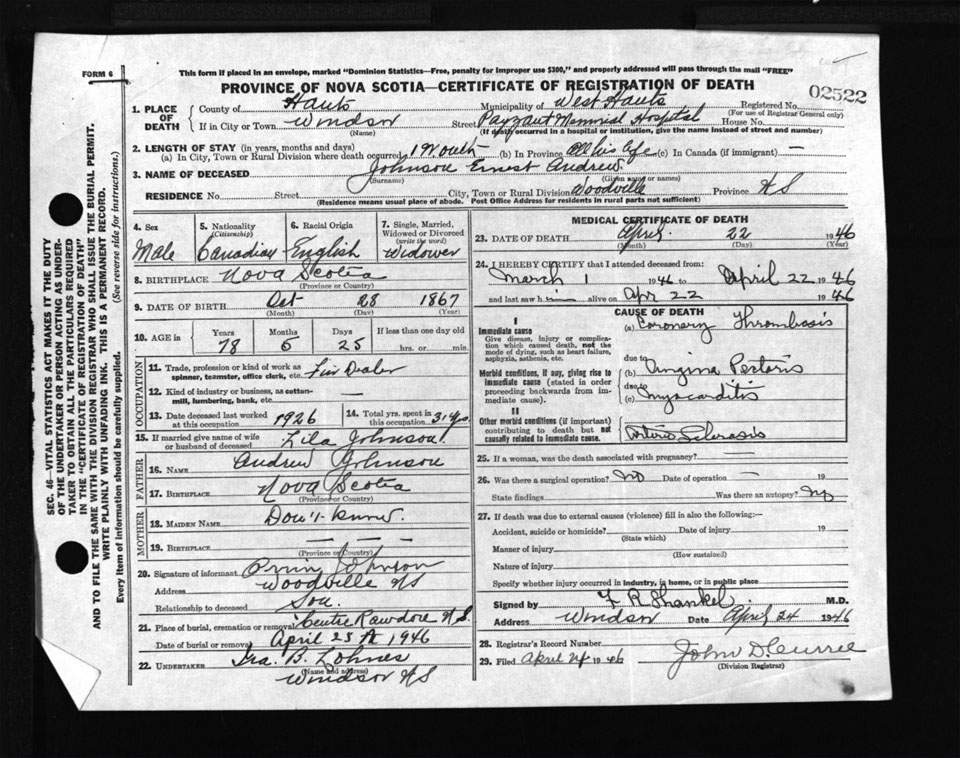 FORM 6
This form if placed in an envelope, marked "Dominion Statistics—Free, penalty for improper use $300," and properly addressed will pass through the mail "FREE"
PROVINCE OF NOVA SCOTIA—CERTIFICATE OF REGISTRATION OF DEATH
02522
1. PLACE OF DEATH
County of Hants Municipality of West Hants Registered No.
(For use of Registrar General only)
If in City or Town Windsor Street Payzant Memorial Hospital House No.
(Name) (If death occurred in a hospital or institution, give the name instead of street and number)
2. LENGTH OF STAY (in years, months and days)
(a) In City, Town or Rural Division where death occurred 1 Month (b) In Province All his life (c) In Canada (if immigrant) —
3. NAME OF DECEASED Johnson Ernest Andrew
(Surname) (Given name or names)
RESIDENCE No. Street City, Town or Rural Division Woodville Province N S
(Residence means usual place of abode. Post Office Address for residents in rural parts not sufficient)
4. Sex Male
5. Nationality (Citizenship) Canadian
6. Racial Origin English
7. Single, Married, Widowed or Divorced (write the word) Widower
8. BIRTHPLACE Nova Scotia
(Province or Country)
9. DATE OF BIRTH Oct 28 1867
(Month) (Day) (Year)
10. AGE in Years Months Days If less than one day old
78 5 25 hrs. or min.
OCCUPATION
11. Trade, profession or kind of work as spinner, teamster, office clerk, etc. Fur Dealer
12. Kind of industry or business, as cotton-mill, lumbering, bank, etc. —
13. Date deceased last worked at this occupation 1926
14. Total yrs. spent in this occupation 31 yrs.
15. If married give name of wife or husband of deceased Lila Johnson
FATHER
16. NAME Andrew Johnson
17. BIRTHPLACE Nova Scotia
(Province or Country)
MOTHER
18. MAIDEN NAME Don't know.
19. BIRTHPLACE — — —
(Province or Country)
20. Signature of informant Johnson
Address Woodville N S
Relationship to deceased Son.
21. Place of burial, cremation or removal Centre Rawdon N.S.
Date of burial or removal April 25th 1946
22. UNDERTAKER Ira. B. Lohnes
(Name and address)
Windsor N S
MEDICAL CERTIFICATE OF DEATH
23. DATE OF DEATH April 22 1946
(Month) (Day) (Year)
24. I HEREBY CERTIFY that I attended deceased from:
March 1 1946 to April 22 1946
and last saw h alive on Apr 22 1946
CAUSE OF DEATH
I
Immediate cause
Give disease, injury or complication which caused death, not the mode of dying, such as heart failure, asphyxia, asthenia, etc.
(a) Coronary Thrombosis
due to
Morbid conditions, if any, giving rise to immediate cause (stated in order proceeding backwards from immediate cause).
(b) Angina Pectoris
due to
(c) Myocarditis
II
Other morbid conditions (if important) contributing to death but not causally related to immediate cause.
Arterio Sclerosis
25. If a woman, was the death associated with pregnancy? —
26. Was there a surgical operation? No Date of operation — 19
State findings Was there an autopsy? No
27. If death was due to external causes (violence) fill in also the following:—
Accident, suicide or homicide? Date of injury 19
(State which)
Manner of injury
(How sustained)
Nature of injury
Specify whether injury occurred in industry, in home, or in public place
Signed by F R Shankel M.D.
Address Windsor Date April 24 1946
28. Registrar's Record Number
29. Filed April 24 1946 John D Currie
(Division Registrar)
SEC. 46—VITAL STATISTICS ACT MAKES IT THE DUTY
OF THE UNDERTAKER OR PERSON ACTING AS UNDER-
TAKER TO OBTAIN ALL THE PARTICULARS REQUIRED
IN THE "CERTIFICATE OF REGISTRATION OF DEATH"
AND TO FILE THE SAME WITH THE DIVISION REGISTRAR WHO SHALL ISSUE THE BURIAL PERMIT.
WRITE PLAINLY WITH UNFADING INK. THIS IS A PERMANENT RECORD.
Every item of information should be carefully supplied. (See reverse side for instructions.)